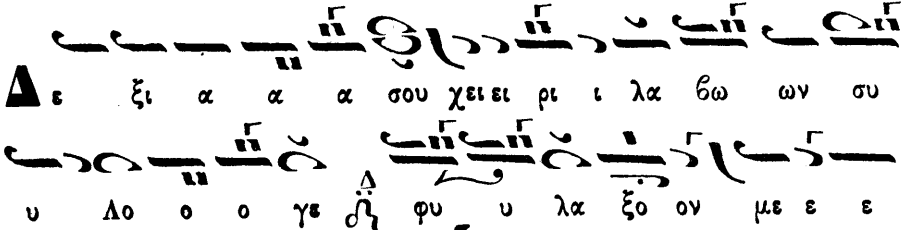 Δε ξι α α α σου χει ει ρι ι λα βω ων συ
υ Λο ο ο γε Δ φυ υ λα ξο ον με ε ε